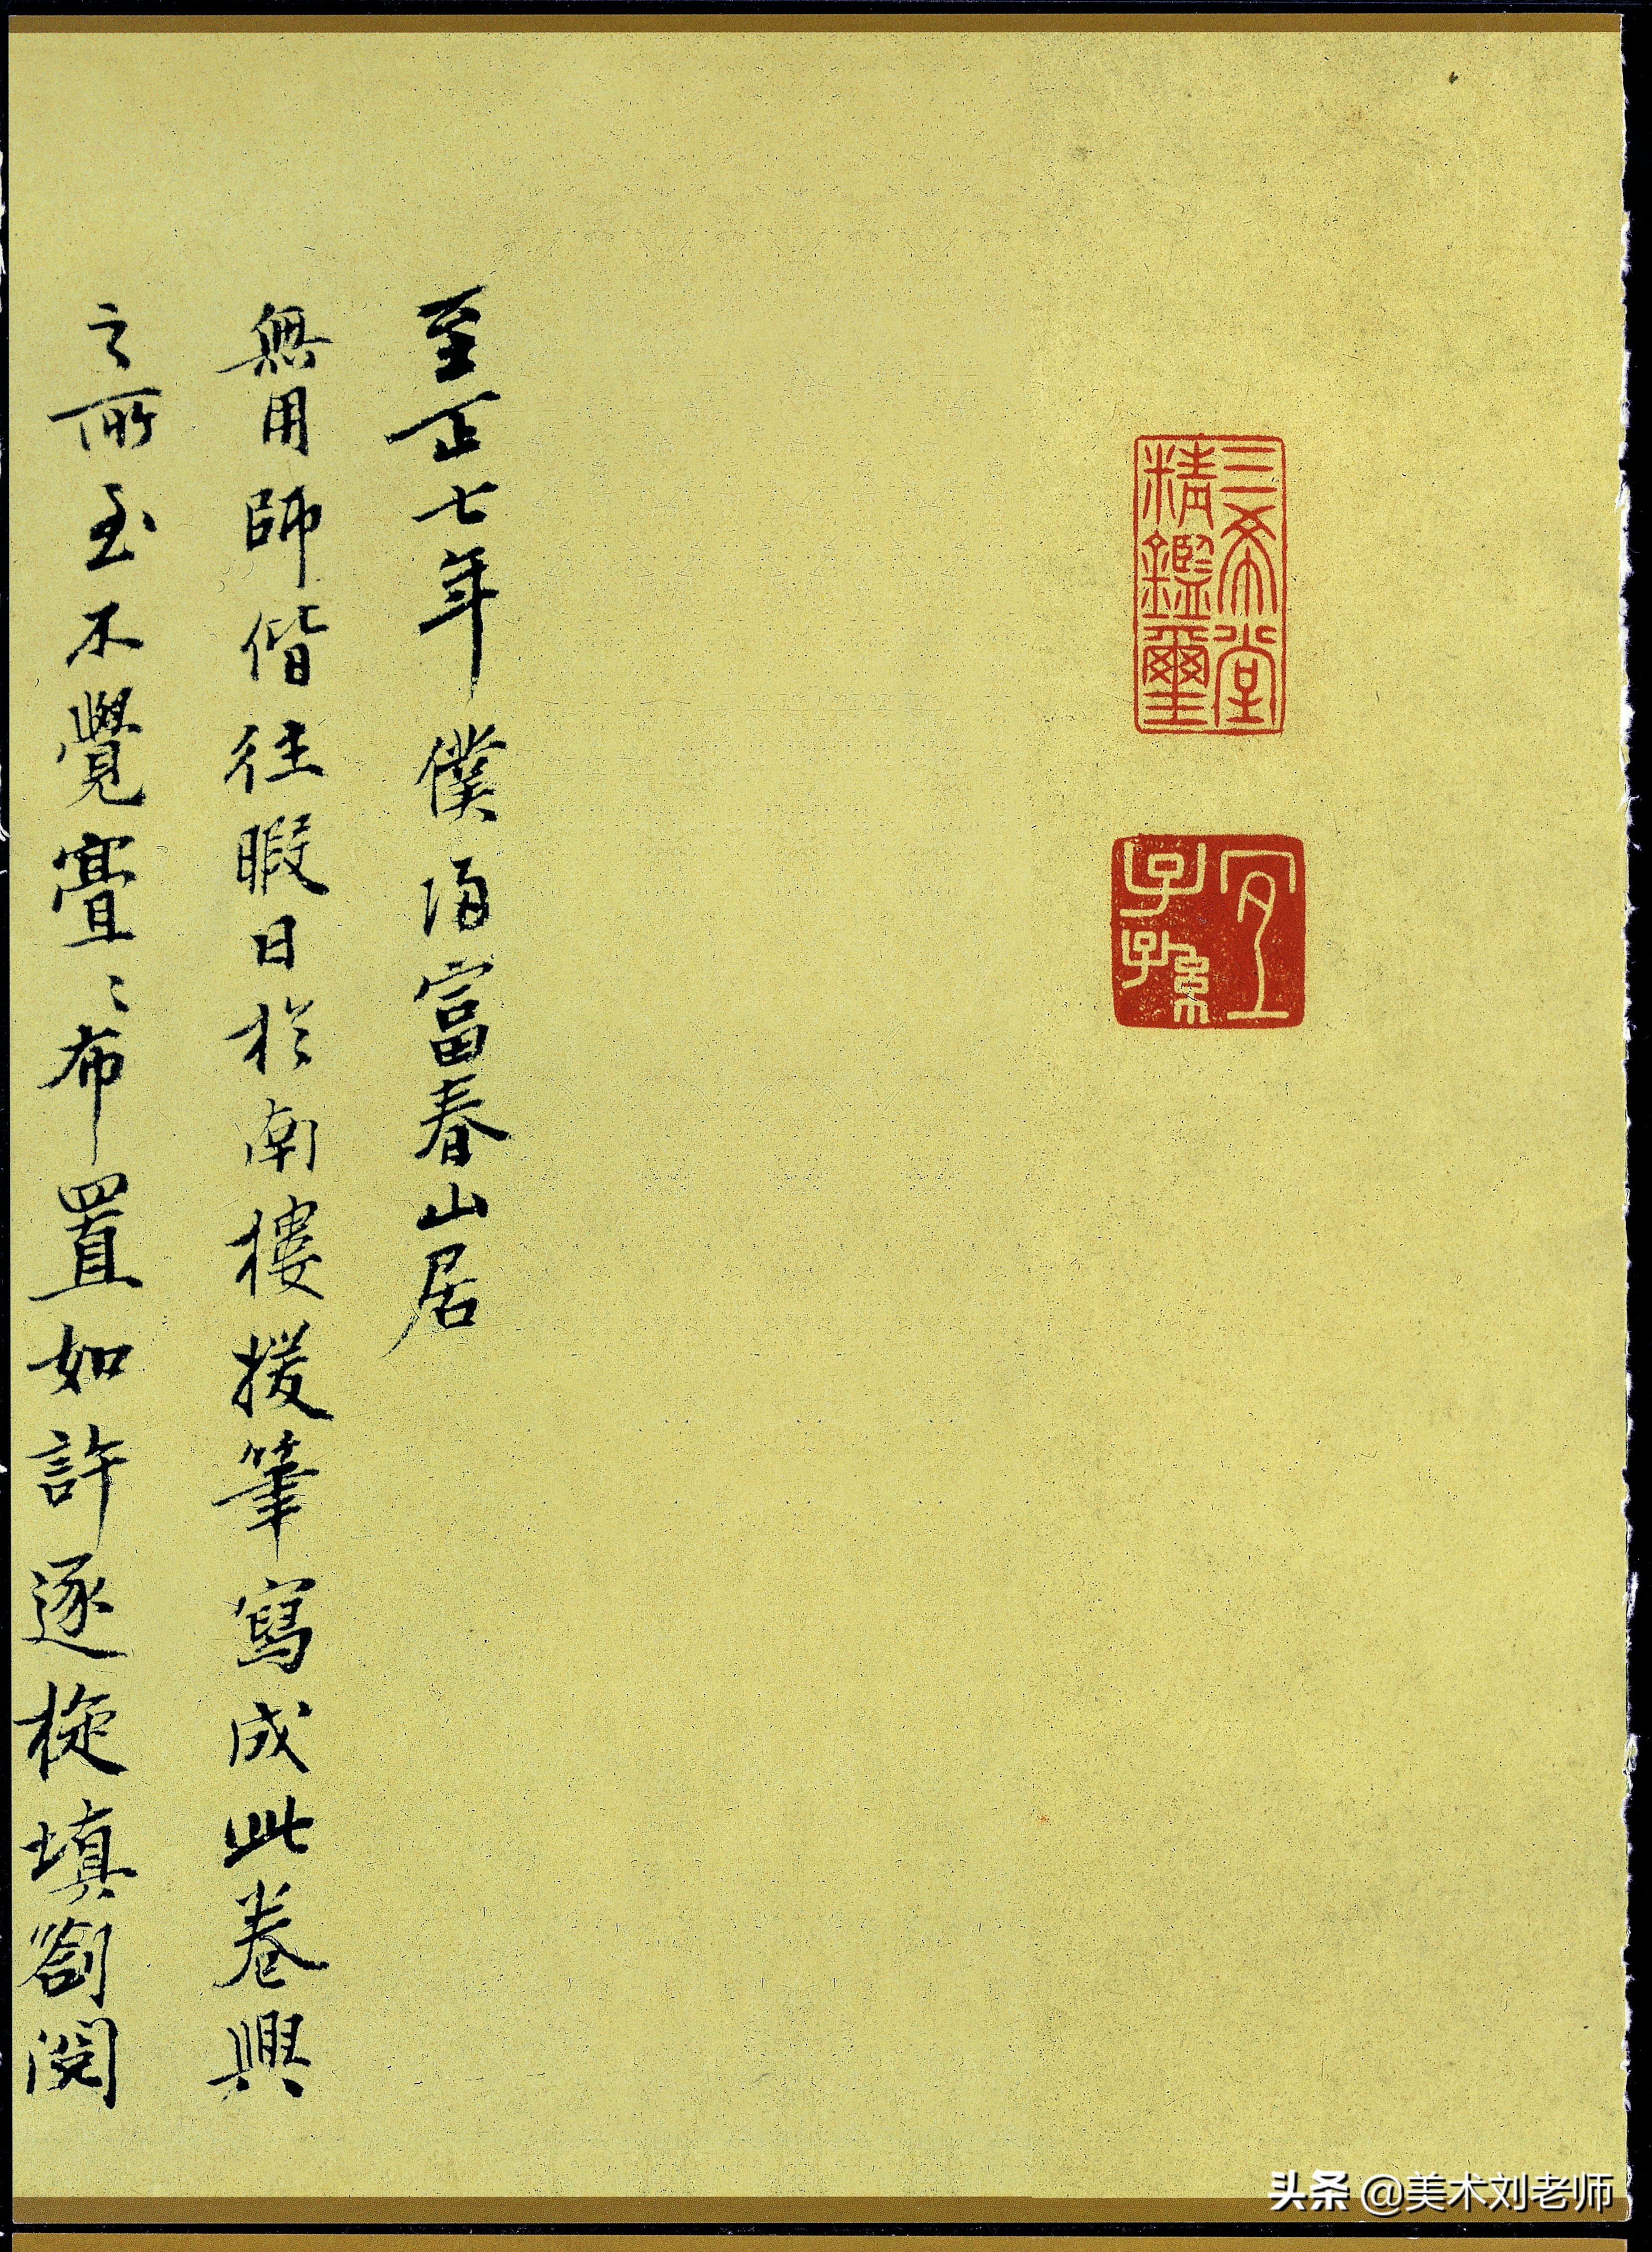 三希堂
精鑑璽
宜
子孫
至正七年僕歸富春山居
無用師偕往暇日於南樓援筆寫成此卷興
之所至不覺亹〻布置如許逐旋填劄閱
头条 @美术刘老师